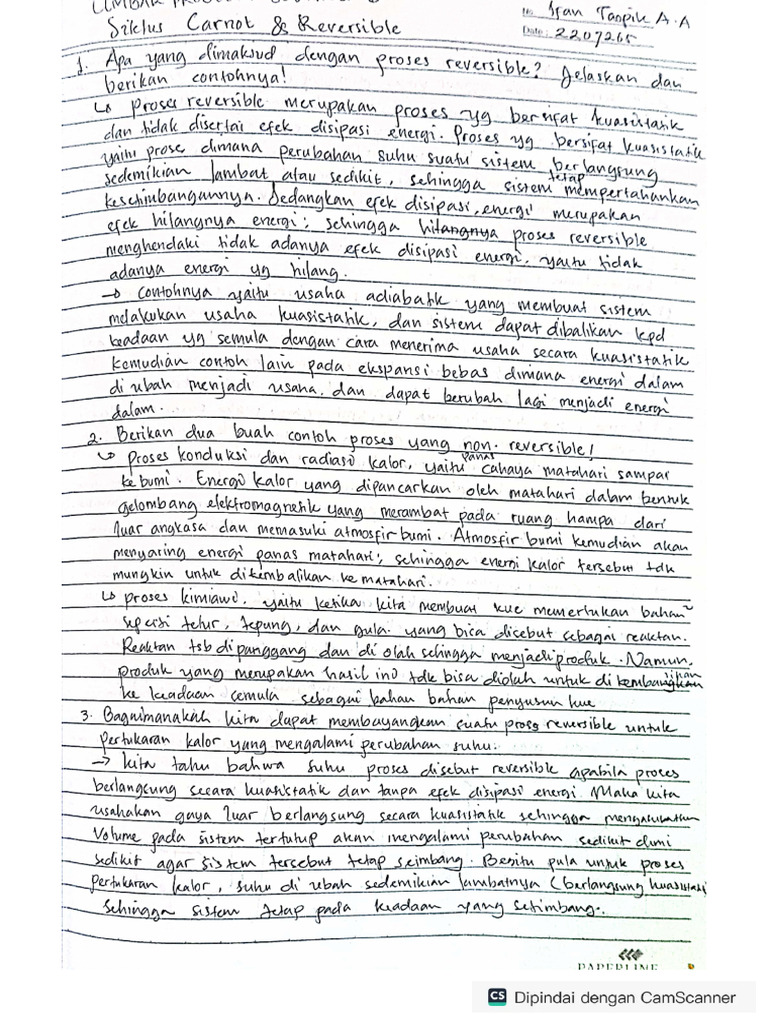 Siklus Carnot & Reversible
No. Iran Taopik A.A
Date: 2207265
1. Apa yang dimaksud dengan proses reversible? Jelaskan dan
berikan contohnya!
↳ Proses reversible merupakan proses yg bersifat kuasistatik
dan tidak disertai efek disipasi energi. Proses yg bersifat kuasistatik
yaitu prose dimana perubahan suhu suatu sistem berlangsung
sedemikian lambat atau sedikit, sehingga sistem tetap mempertahankan
keseimbangannya. Sedangkan efek disipasi energi merupakan
efek hilangnya energi; sehingga hilangnya proses reversible
menghendaki tidak adanya efek disipasi energi, yaitu tidak
adanya energi yg hilang.
→ Contohnya yaitu usaha adiabatik yang membuat sistem
melakukan usaha kuasistatik, dan sistem dapat dibalikan kpd
keadaan yg semula dengan cara menerima usaha secara kuasistatik
kemudian contoh lain pada ekspansi bebas dimana energi dalam
di ubah menjadi usaha. dan dapat berubah lagi menjadi energi
dalam.
2. Berikan dua buah contoh proses yang non-reversible!
↳ Proses konduksi dan radiasi kalor, yaitu panas cahaya matahari sampai
ke bumi. Energi kalor yang dipancarkan oleh matahari dalam bentuk
gelombang elektromagnetik yang merambat pada ruang hampa dari
luar angkasa dan memasuki atmosfir bumi. Atmosfir bumi kemudian akan
menyaring energi panas matahari; sehingga energi kalor tersebut tdk
mungkin untuk dikembalikan ke matahari.
↳ proses kimiawi, yaitu ketika kita membuat kue memerlukan bahan~
seperti telur, tepung, dan gula. yang bisa disebut sebagai reaktan.
Reaktan tsb dipanggang dan di olah sehingga menjadi produk. Namun,
produk yang merupakan hasil ino tdk bisa diolah untuk di kembangkan
ke keadaan semula sebagai bahan bahan penyusun kue
3. Bagaimanakah kita dapat membayangkan suatu proses reversible untuk
pertukaran kalor yang mengalami perubahan suhu.
→ kita tahu bahwa suhu proses disebut reversible apabila proses
berlangsung secara kuasistatik dan tanpa efek disipasi energi. Maka kita
usahakan gaya luar berlangsung secara kuasistatik sehingga
Volume pada sistem tertutup akan mengalami perubahan sedikit demi
sedikit agar sistem tersebut tetap seimbang. Begitu pula untuk proses
pertukaran kalor, suhu di ubah sedemikian lambatnya (berlangsung kuasistatik)
sehingga sistem tetap pada keadaan yang setimbang.
PAPERLINE
CS Dipindai dengan CamScanner